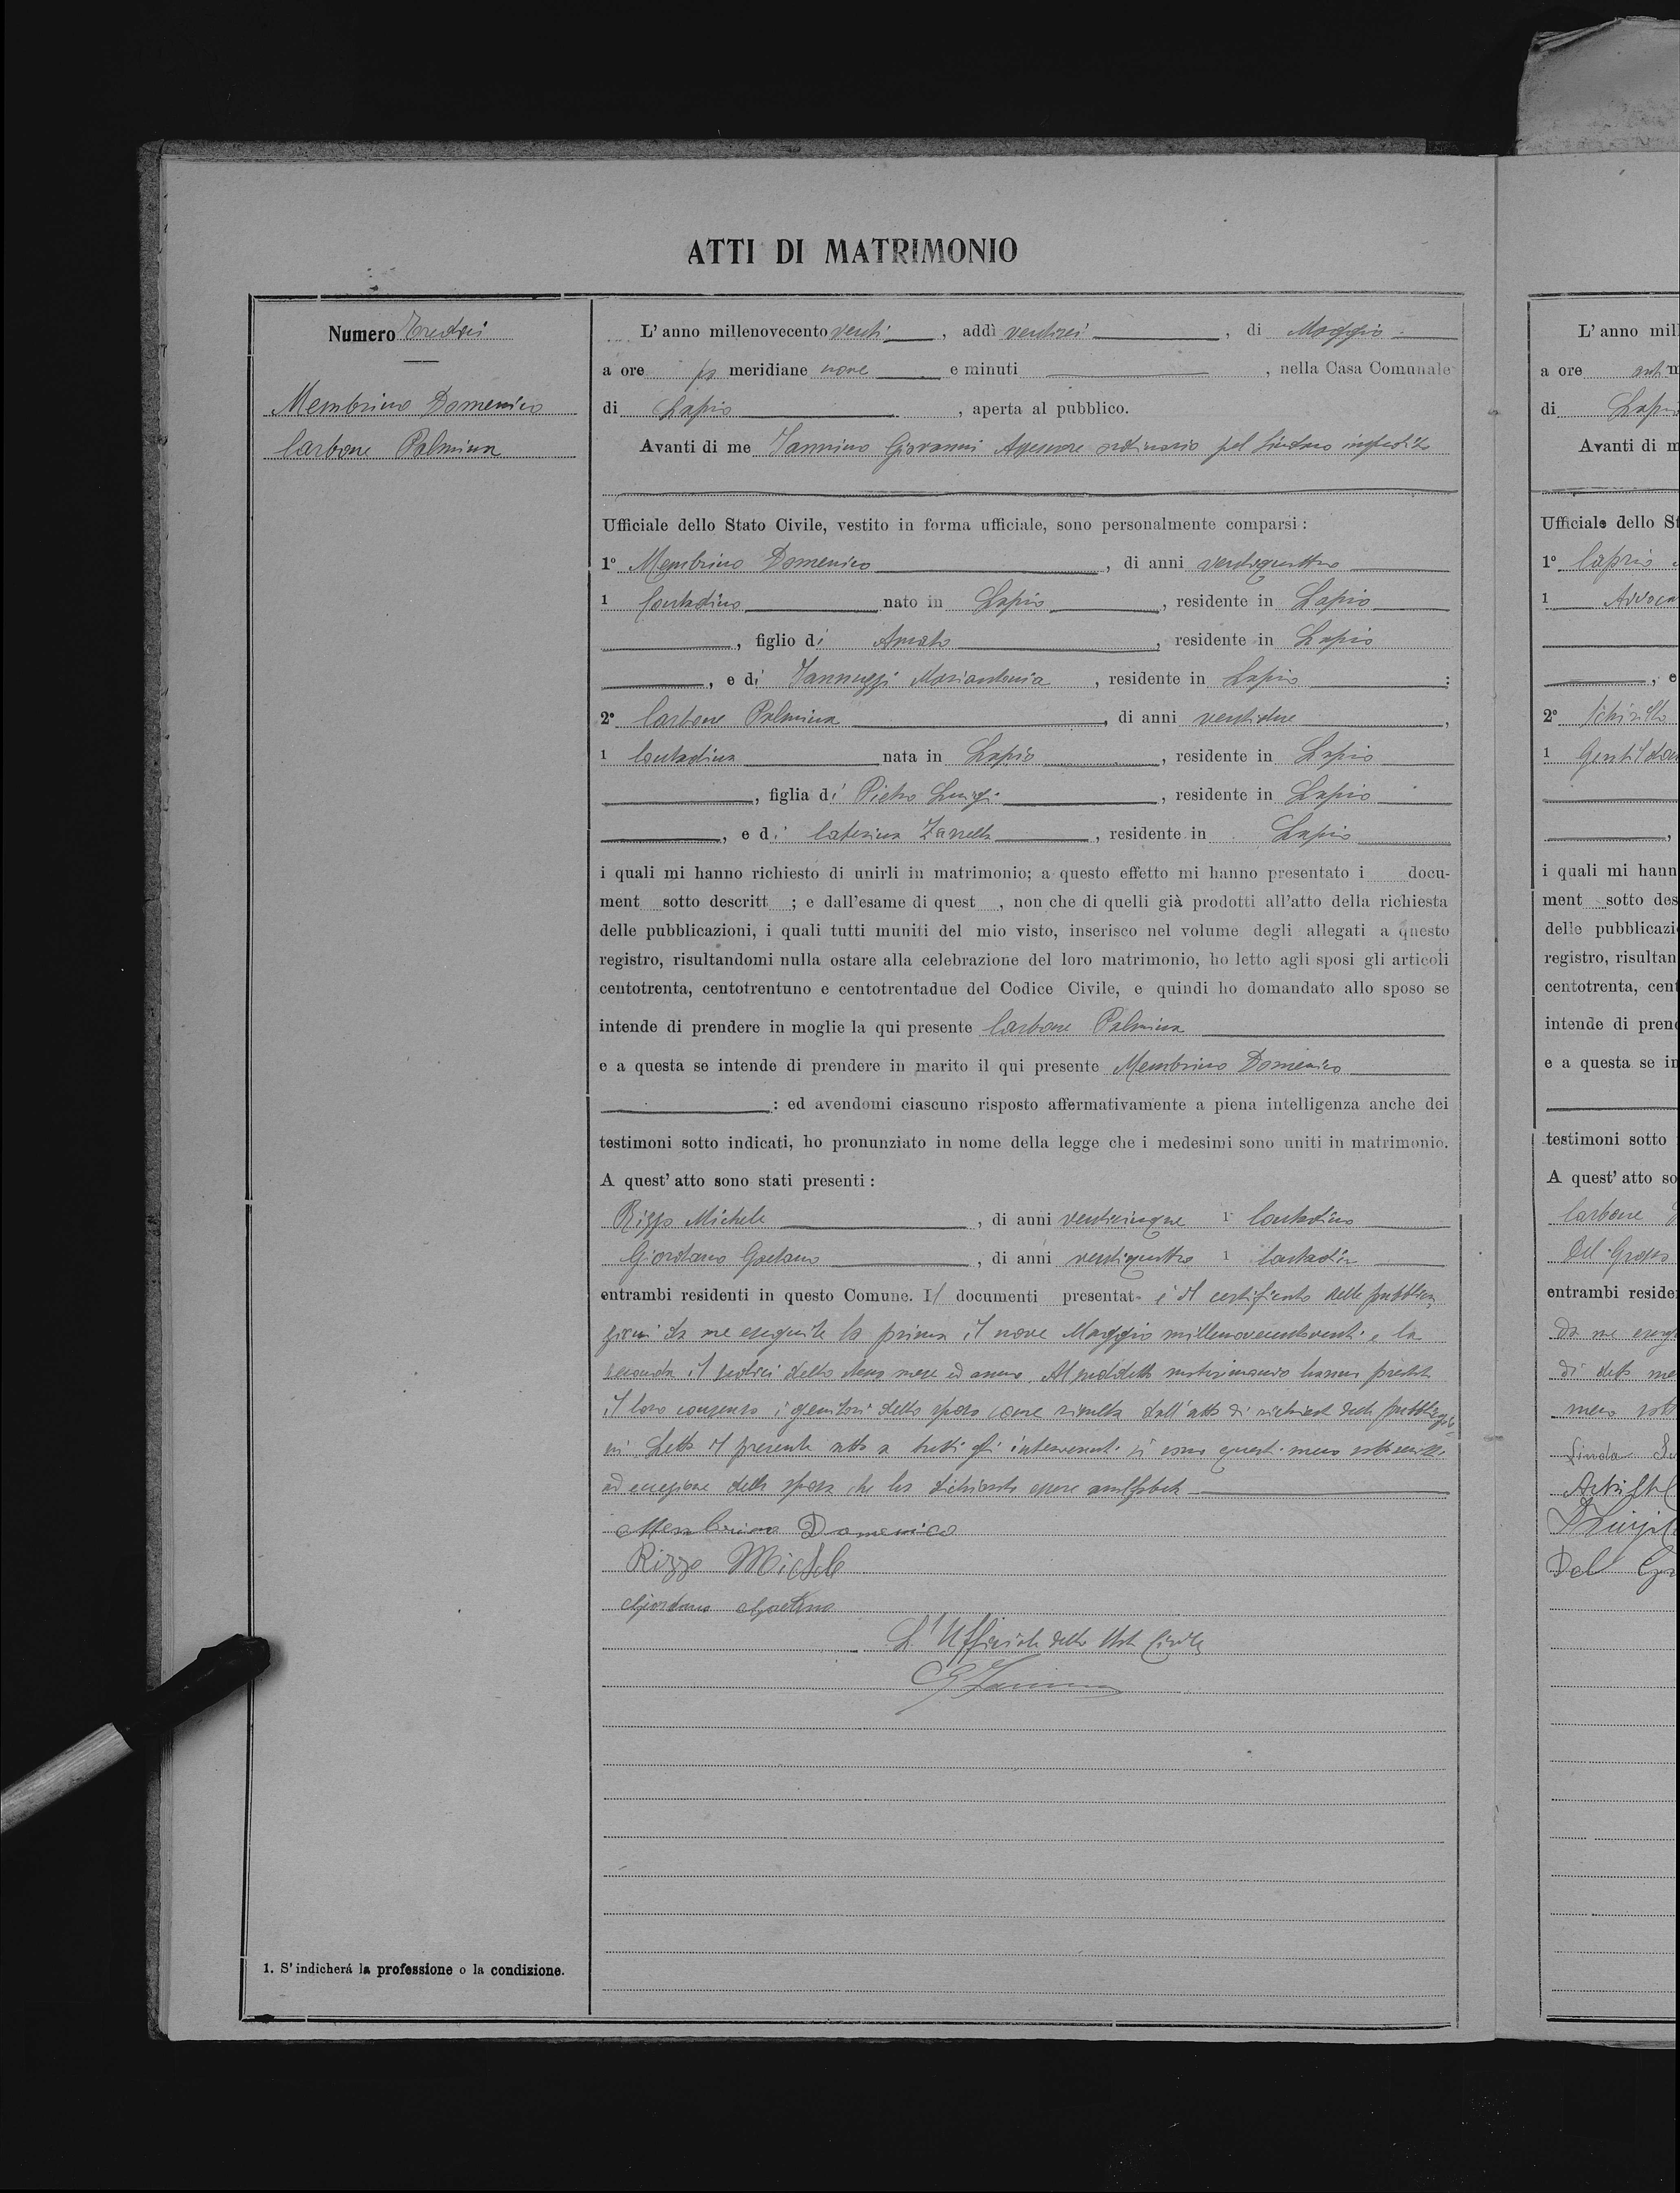 ATTI DI MATRIMONIO
Numero Tredici
Membrino Domenico
Carbone Palmina
L'anno millenovecento venti, addì ventisei, di Maggio
a ore po meridiane nove e minuti, nella Casa Comunale
di Lapio, aperta al pubblico.
Avanti di me Iannino Giovanni Assessore ordinario pel Sindaco impedito
Ufficiale dello Stato Civile, vestito in forma ufficiale, sono personalmente comparsi:
1° Membrino Domenico, di anni ventiquattro
1 Contadino nato in Lapio, residente in Lapio
, figlio di Amato, residente in Lapio
, e di Iannuzzi Mariantonia, residente in Lapio;
2° Carbone Palmina, di anni ventidue,
1 Contadina nata in Lapio, residente in Lapio
, figlia di Pietro Luigi, residente in Lapio
, e di Caterina Zarrella, residente in Lapio
i quali mi hanno richiesto di unirli in matrimonio; a questo effetto mi hanno presentato i docu-
ment sotto descritt ; e dall'esame di quest , non che di quelli già prodotti all'atto della richiesta
delle pubblicazioni, i quali tutti muniti del mio visto, inserisco nel volume degli allegati a questo
registro, risultandomi nulla ostare alla celebrazione del loro matrimonio, ho letto agli sposi gli articoli
centotrenta, centotrentuno e centotrentadue del Codice Civile, e quindi ho domandato allo sposo se
intende di prendere in moglie la qui presente Carbone Palmina
e a questa se intende di prendere in marito il qui presente Membrino Domenico
: ed avendomi ciascuno risposto affermativamente a piena intelligenza anche dei
testimoni sotto indicati, ho pronunziato in nome della legge che i medesimi sono uniti in matrimonio.
A quest'atto sono stati presenti:
Rizzo Michele, di anni venticinque 1 Contadino
Giordano Gaetano, di anni ventiquattro 1 Contadin
entrambi residenti in questo Comune. Il documenti presentat è il certificato delle pubblica
zioni da me eseguite la prima il nove Maggio millenovecentoventi e la
seconda il sedici dello stesso mese ed anno. Al suddetto matrimonio hanno prestato
il loro consenso i genitori dello sposo come risulta dall'atto di richiesta delle pubblicazio
ni Letto il presente atto a tutti gli intervenuti si sono questi meco sottoscritti
ad eccezione della sposa che ha dichiarato essere analfabeta
Membrino Domenico
Rizzo Michele
Giordano Gaetano
L'Ufficiale dello Stato Civile
G Iannino
1. S'indicherá la professione o la condizione.
L'anno mill
a ore anti m
di Lapio
Avanti di m
Ufficiale dello St
1° Caprio
1 Avvoca
, e
2° Schirillo
1 Gentildon
i quali mi hann
ment sotto des
delle pubblicazi
registro, risultan
centotrenta, cent
intende di prend
e a questa se in
testimoni sotto
A quest'atto so
Carbone
Del Grosso
entrambi reside
da me eseg
di detto me
meco sott
Luigi
Del Gr